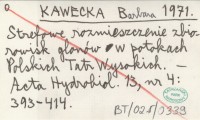 KAWECKA Barbara 1971.
Strefowe rozmieszczenie zbio-
rowisk glonów w potokach
Polskich Tatr Wysokich. —
Acta Hydrobiol. 13, nr 4:
393-414.